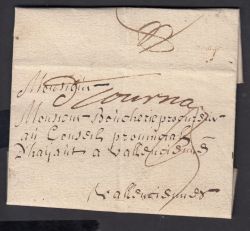 Monsieur
Tournay
Monsieur Boucherie procureur
au Conseil provincial
D'haynau a Vallenciennes
Vallenciennes